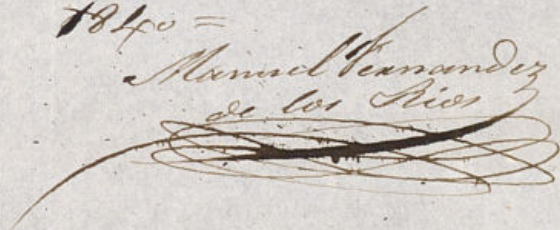 1840 =
Manuel Fernandez
de los Rios